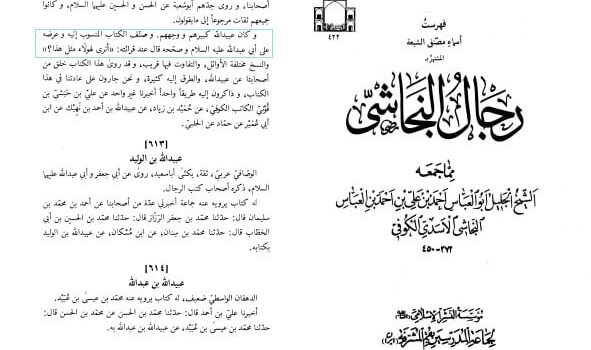 أصحابنا، و روى جدّهم أبوشعبة عن الحسن و الحسين عليهما السلام، و كانوا
جميعهم ثقات مرجوعاً إلى مايقولون.
و كان عبيدالله كبيرهم و وجههم. و صنّف الكتاب المنسوب إليه و عرضه
على أبي عبدالله عليه السلام و صحّحه قال عند قرائته: «أترى لهؤلاء مثل هذا؟»
والنسخ مختلفة الأوائل، والتفاوت فيها قريب، و قد روىٰ هذا الكتاب خلق من
أصحابنا عن عبيدالله، والطرق إليه كثيرة، و نحن جارون على عادتنا في هذا
الكتاب، و ذاكرون إليه طريقاً واحداً أخبرنا غير واحد عن عليّ بن حُبشيّ بن
قُونيّ الكاتب الكوفيّ، عن حُمَيد بن زياد، عن عبيدالله بن أحمد بن نَهيك عن ابن
أبي عُمَير عن حمّاد عن الحلبيّ.
[٦١٣]
عبيدالله بن الوليد
الوصّافيّ عربيّ، ثقة، يكنّى أباسعيد، روىٰ عن أبي جعفر و أبي عبدالله عليهما
السلام، ذكره أصحاب كتب الرجال.
له كتاب يرويه عنه جماعة أخبرني عدّة من أصحابنا عن أحمد بن محمّد بن
سليمان قال: حدّثنا محمّد بن جعفر الرزّاز قال: حدّثنا محمّد بن الحسين بن أبي
الخطّاب قال: حدّثنا محمّد بن سِنان، عن ابن مُسْكان، عن عبيدالله بن الوليد
بكتابه.
[٦١٤]
عبيدالله بن عبدالله
الدهقان الواسطيّ ضعيف، له كتاب يرويه عنه محمّد بن عيسىٰ بن عُبَيْد.
أخبرنا عليّ بن أحمد قال: حدّثنا محمّد بن الحسن عن محمّد بن الحسن قال:
حدّثنا محمّد بن عيسىٰ بن عُبَيْد، عن عبيدالله بن عبدالله به.
فهرست
أسماء مصنّفي الشيعة
المشتهر بـ
٤٢٢
رجال النجاشي
ممّا جمعه
الشيخ الجليل أبو العباس أحمد بن علي بن أحمد بن العباس
النجاشي الأسدي الكوفي
٣٧٢-٤٥٠
مؤسسة النشر الإسلامي
لجماعة المدرسين بقم المشرفة